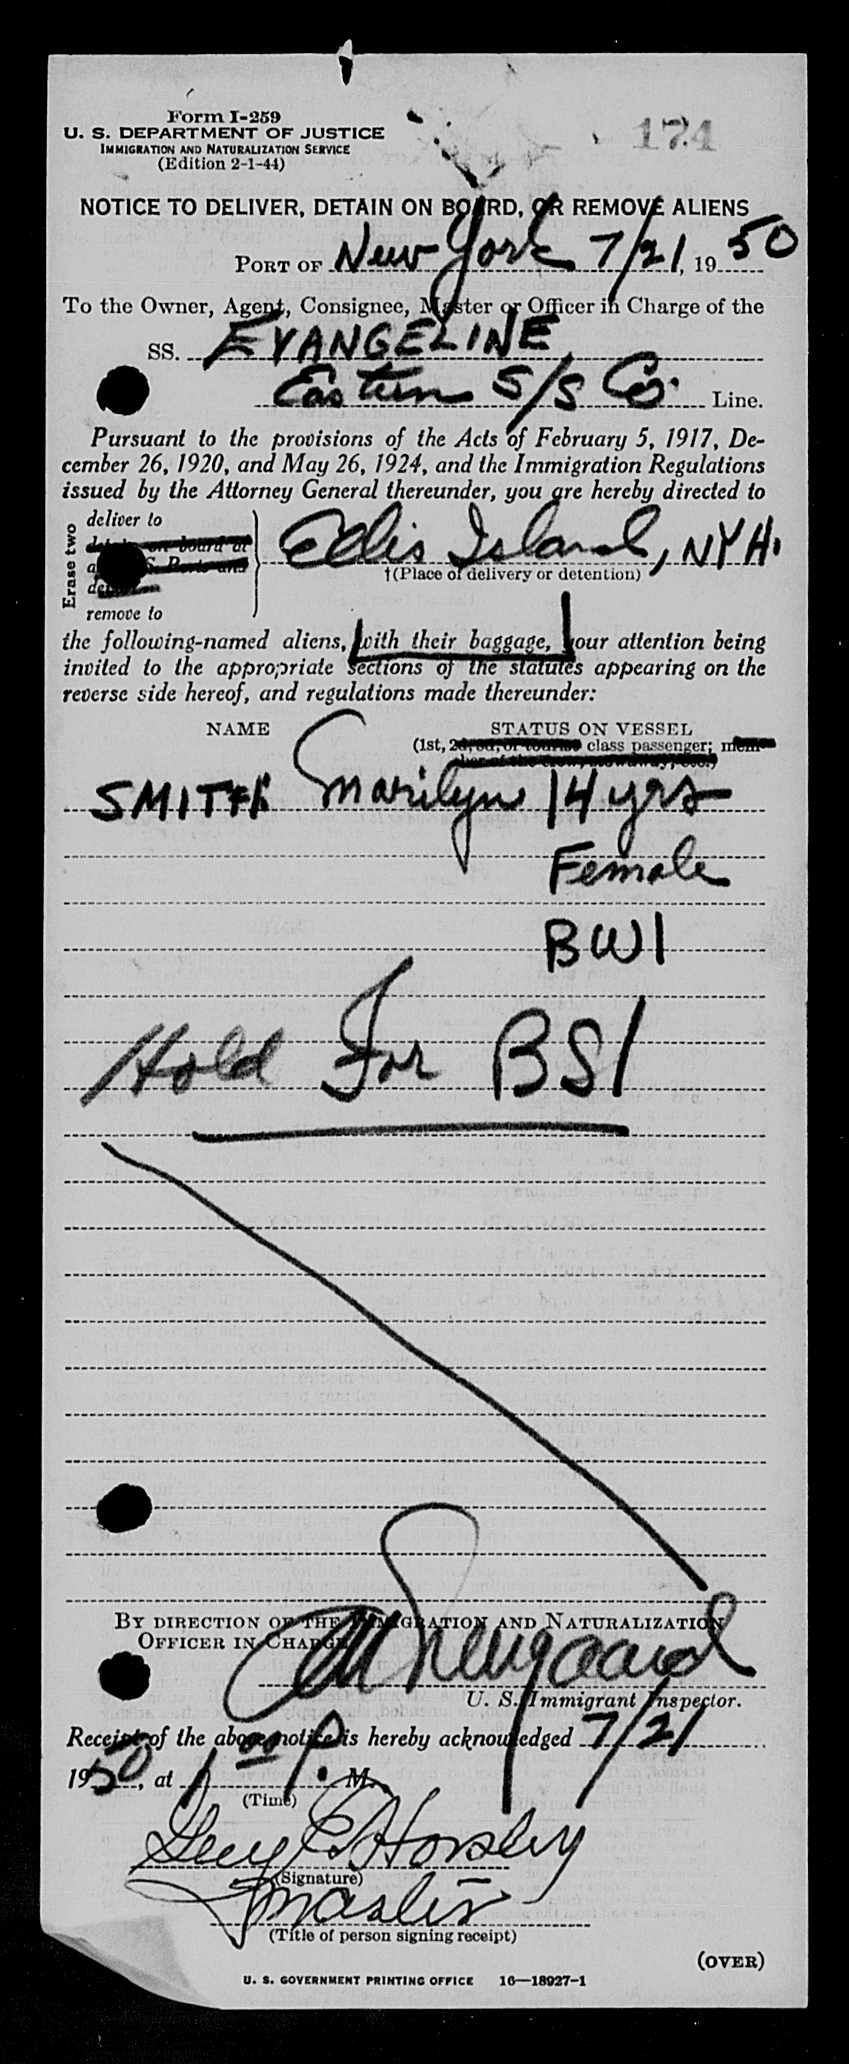 174
Form I-259
U. S. DEPARTMENT OF JUSTICE
IMMIGRATION AND NATURALIZATION SERVICE
(Edition 2-1-44)
NOTICE TO DELIVER, DETAIN ON BOARD, OR REMOVE ALIENS
PORT OF New York 7/21, 1950
To the Owner, Agent, Consignee, Master or Officer in Charge of the
SS. EVANGELINE
Eastern S/S Co. Line.
Pursuant to the provisions of the Acts of February 5, 1917, De-
cember 26, 1920, and May 26, 1924, and the Immigration Regulations
issued by the Attorney General thereunder, you are hereby directed to
Erase two
deliver to
on board at
S. Ports and
remove to
Ellis Island, NYH.
†(Place of delivery or detention)
the following-named aliens, with their baggage, your attention being
invited to the appropriate sections of the statutes appearing on the
reverse side hereof, and regulations made thereunder:
NAME STATUS ON VESSEL
(1st, 2d, 3d, or tourist class passenger; mem-
ber of the crew, stowaway, etc.)
SMITH Marilyn 14 yrs
Female
BWI
Hold For BSI
BY DIRECTION OF THE IMMIGRATION AND NATURALIZATION
OFFICER IN CHARGE
U. S. Immigrant Inspector.
Receipt of the above notice is hereby acknowledged 7/21
1950, at 1 P. M.
(Time)
Horsley
(Signature)
Master
(Title of person signing receipt)
(OVER)
U. S. GOVERNMENT PRINTING OFFICE 16—18927-1